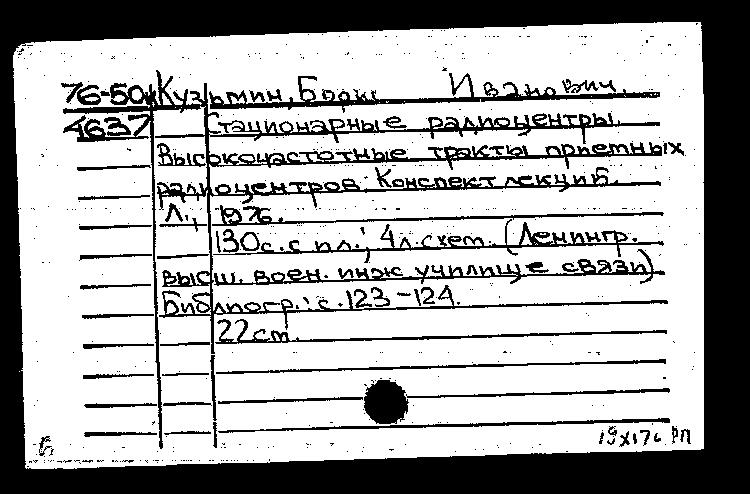 76-50к Кузьмин, Борис Иванович.
4637 Стационарные радиоцентры.
Высокочастотные тракты приемных
радиоцентров. Конспект лекций.
Л., 1976.
130с. с ил.; 4л. схем. (Ленингр.
высш. воен. инж. училище связи)
Библиогр.: с. 123-124.
22 cm.